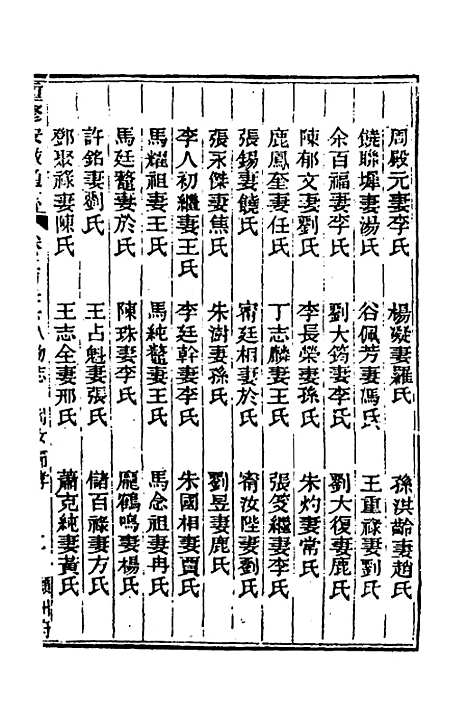 周殿元妻李氏　楊凝妻羅氏　孫淇齡妻趙氏
饒聯墀妻湯氏　谷佩芳妻馮氏　王重祿妻劉氏
余百福妻李氏　劉大筠妻李氏　劉大復妻鹿氏
陳郁文妻劉氏　李長榮妻孫氏　朱灼妻常氏
鹿鳳奎妻任氏　丁志麟妻王氏　張笅繼妻李氏
張錫妻饒氏　甯廷相妻於氏　甯汝陛妻劉氏
張永傑妻焦氏　朱澍妻孫氏　劉昱妻鹿氏
李人初繼妻王氏　李廷幹妻李氏　朱國相妻賈氏
馬耀祖妻王氏　馬純鼇妻王氏　馬念祖妻冉氏
馬廷鼇妻於氏　陳珠妻李氏　龐鶴鳴妻楊氏
許銘妻劉氏　王占魁妻張氏　儲百祿妻方氏
鄧聚祿妻陳氏　王志全妻邢氏　蕭克純妻黃氏
重修安徽通志　人物志